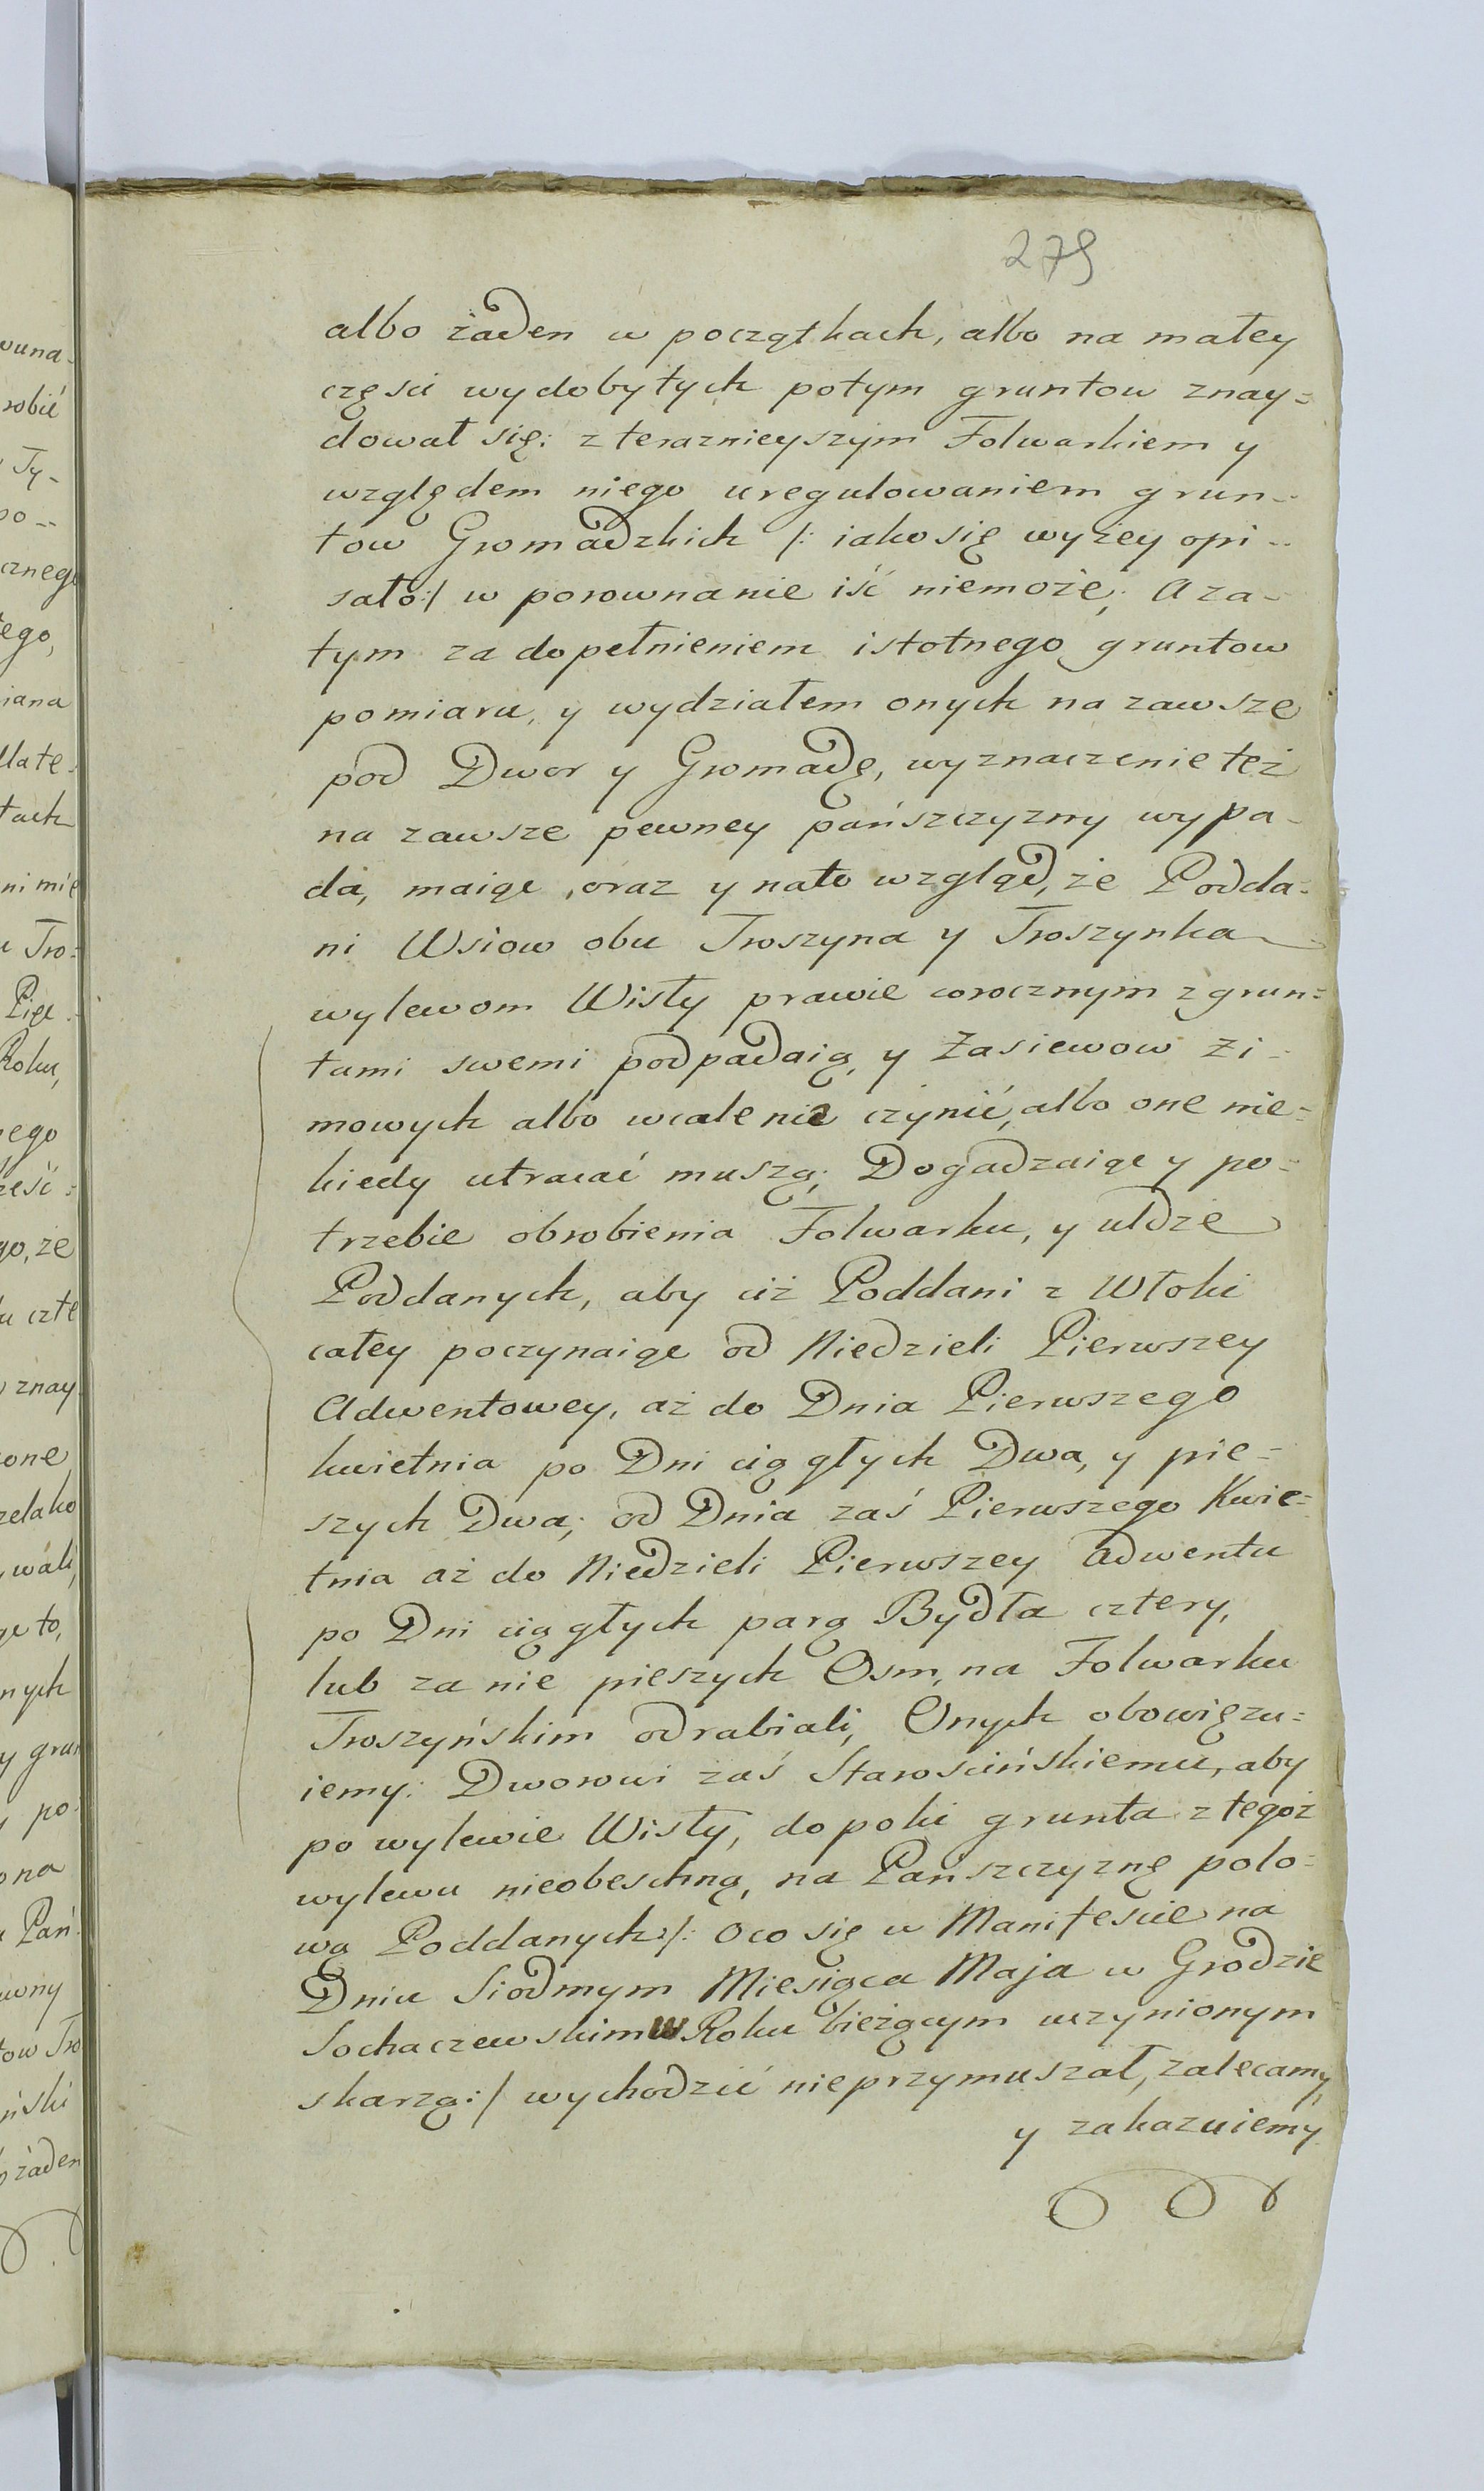 279
albo żaden w początkach, albo na małey
części wydobytych potym gruntow znay=
dował się: z teraznieyszym Folwarkiem y
względem niego uregulowaniem grun=
tow Gromadzkich /: iako się wyżey opi=
sało:/ w porownanie iść niemoże; A za=
tym za dopełnieniem istotnego gruntow
pomiaru, y wydziałem onych na zawsze
pod Dwor y Gromadę, wyznaczenie też
na zawsze pewney pańszczyzny wypa=
da, maiąc, oraz y na to wzgląd, że Podda=
ni Wsiow obu Troszyna y Troszynka
wylewom Wisły prawie corocznym z grun=
tami swemi podpadaią, y Zasiewow Zi=
mowych albo wcale nie czynić, albo one nie=
kiedy utracać muszą; Dogadzaiąc y po=
trzebie obrobienia Folwarku, y uldze
Poddanych, aby ciż Poddani z Włoki
całey poczynaiąc od Niedzieli Pierwszey
Adwentowey, aż do Dnia Pierwszego
kwietnia po Dni ciągłych Dwa, y pie=
szych Dwa; od Dnia zaś Pierwszego Kwie=
tnia aż do Niedzieli Pierwszey Adwentu
po Dni ciągłych parą Bydła cztery,
lub za nie pieszych Osm, na Folwarku
Troszyńskim odrabiali, Onych obowięzu=
iemy: Dworowi zaś Starościńskiemu, aby
po wylewie Wisły, dopoki grunta z tegoż
wylewu nieobeschną, na Pańszczyznę polo=
wą Poddanych /: Oco się w Manifeście na
Dniu Siodmym Miesiąca Maja w Grodzie
Sochaczewskim W Roku bieżącym uczynionym
skarzą:/ wychodzić nieprzymuszał, zalecamy,
y zakazuiemy
wuna=
robić
Ty-
po--
cznego
tego,
iana
tach
Roku,
go, że
znay
one
zelako
wali,
nych
y grun
po
ona
Pań
ński
żaden